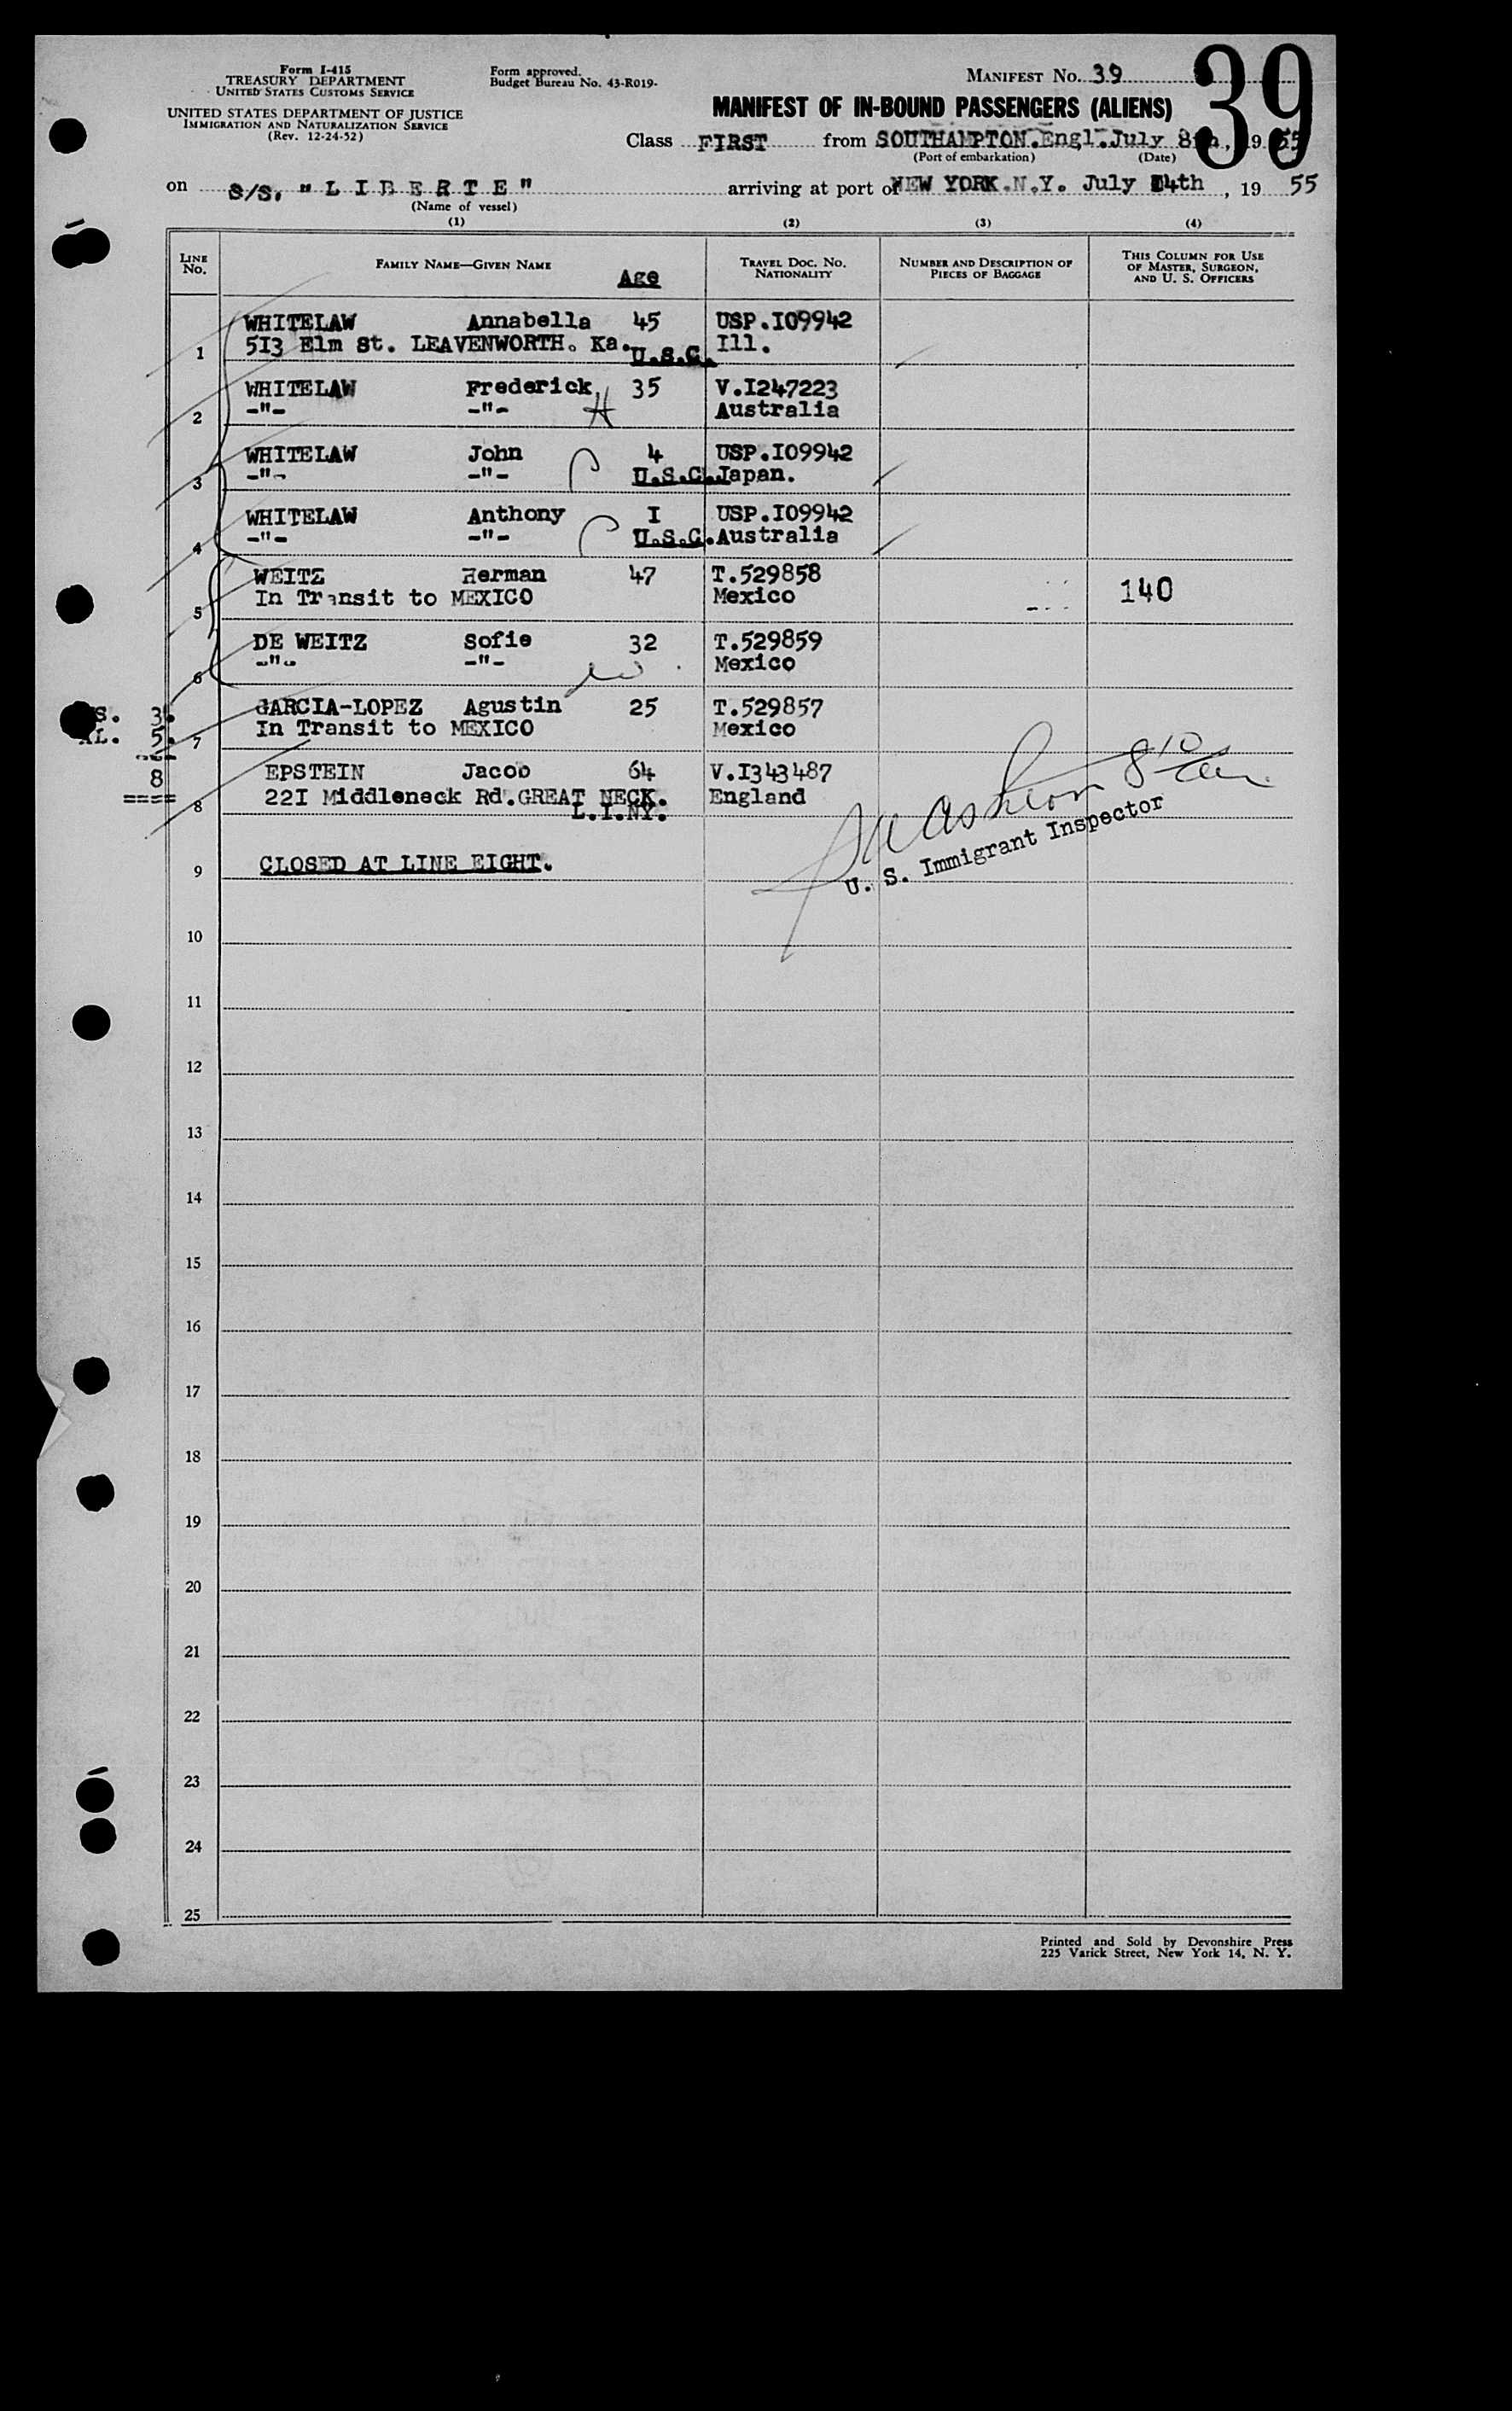 Form I-415
TREASURY DEPARTMENT
UNITED STATES CUSTOMS SERVICE
UNITED STATES DEPARTMENT OF JUSTICE
IMMIGRATION AND NATURALIZATION SERVICE
(Rev. 12-24-52)
Form approved.
Budget Bureau No. 43-R019-
MANIFEST NO. 39
39
MANIFEST OF IN-BOUND PASSENGERS (ALIENS)
Class FIRST from SOUTHAMPTON.Engl.July 8th, 1955
(Port of embarkation) (Date)
on S/S. "LIBERTE" arriving at port of NEW YORK.N.Y. July 14th, 1955
(Name of vessel)
(1) (2) (3) (4)
LINE NO. FAMILY NAME—GIVEN NAME Age TRAVEL DOC. NO. NATIONALITY NUMBER AND DESCRIPTION OF PIECES OF BAGGAGE THIS COLUMN FOR USE OF MASTER, SURGEON, AND U. S. OFFICERS
WHITELAW Annabella 45 USP.I09942
1 5I3 Elm St. LEAVENWORTH. Ka. U.S.C. Ill.
WHITELAW Frederick 35 V.I247223
2 -"- -"- H Australia
WHITELAW John 4 USP.I09942
3 -"- -"- U.S.C. Japan.
WHITELAW Anthony I USP.I09942
4 -"- -"- U.S.C. Australia
WEITZ Herman 47 T.529858
5 In Transit to MEXICO Mexico 140
DE WEITZ Sofie 32 T.529859
6 -"- -"- Mexico
GARCIA-LOPEZ Agustin 25 T.529857
7 In Transit to MEXICO Mexico
S. 3.
AL. 5.
8
====
EPSTEIN Jacob 64 V.I343487
8 22I Middleneck Rd.GREAT NECK. England
L.I.NY.
U. S. Immigrant Inspector
9 CLOSED AT LINE EIGHT.
10
11
12
13
14
15
16
17
18
19
20
21
22
23
24
25
Printed and Sold by Devonshire Press
225 Varick Street, New York 14, N. Y.